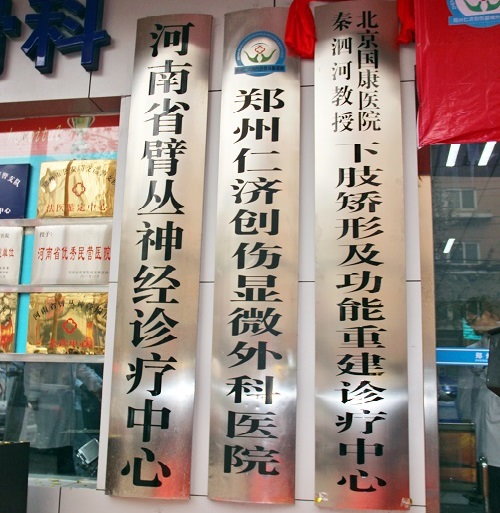 骨科
河南省臂丛神经诊疗中心
郑州仁济创伤显微外科医院
北京国康医院
秦泗河教授
下肢矫形及功能重建诊疗中心
河南省优秀民营医院